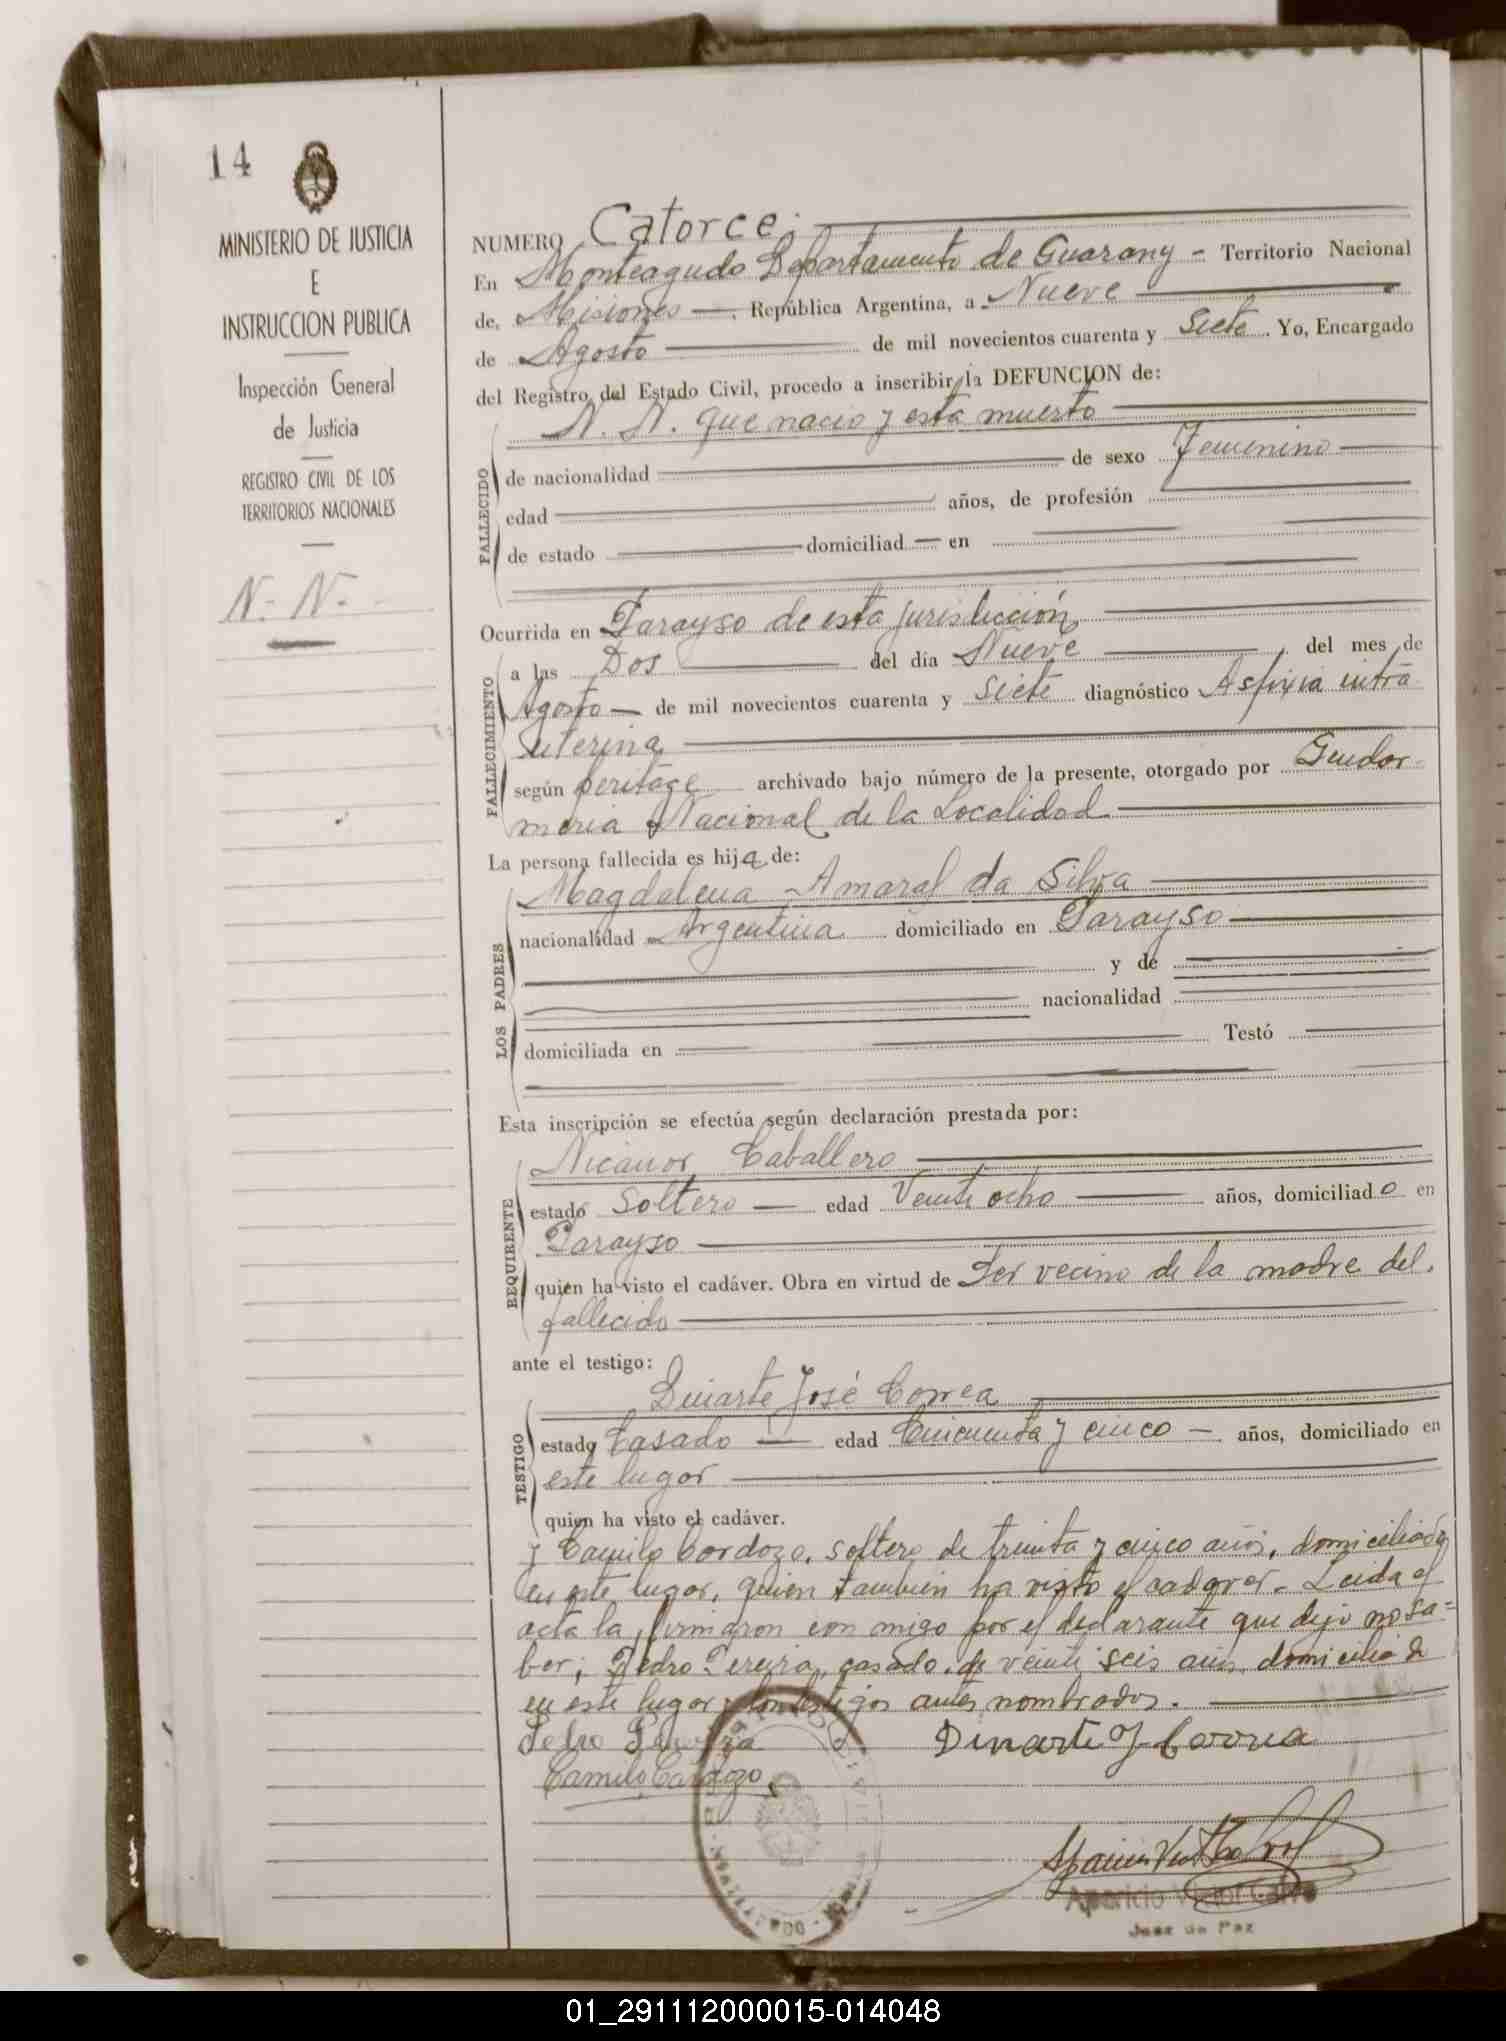 14
MINISTERIO DE JUSTICIA
E
INSTRUCCION PUBLICA
Inspección General
de Justicia
REGISTRO CIVIL DE LOS
TERRITORIOS NACIONALES
N. N.
NUMERO Catorce.
En Monteagudo Departamento de Guarany - Territorio Nacional
de Misiones, República Argentina, a Nueve
de Agosto de mil novecientos cuarenta y Siete. Yo, Encargado
del Registro del Estado Civil, procedo a inscribir la DEFUNCION de:
N. N. que nacio y esta muerto
FALLECIDO
de nacionalidad de sexo Femenino
edad años, de profesión
de estado domiciliad en
Ocurrida en Parayso de esta jurisdicción
FALLECIMIENTO
a las Dos del día Nueve del mes de
Agosto de mil novecientos cuarenta y Siete diagnóstico Asfixia intra
uterina
según peritage archivado bajo número de la presente, otorgado por Gendar-
meria Nacional de la Localidad
La persona fallecida es hija de:
LOS PADRES
Magdalena Amaral da Silva
nacionalidad Argentina domiciliado en Parayso
y de
nacionalidad
domiciliada en Testó
Esta inscripción se efectúa según declaración prestada por:
REQUIRENTE
Nicanor Caballero
estado Soltero edad Veinte ocho años, domiciliado en
Parayso
quien ha visto el cadáver. Obra en virtud de Ser vecino de la madre del
fallecido
ante el testigo:
TESTIGO
Duiarte José Correa
estado Casado edad Cincuenta y cinco años, domiciliado en
este lugar
quien ha visto el cadáver.
y Camilo Cardozo, soltero de treinta y cinco años, domiciliado
en este lugar, quien tambien ha visto el cadaver. Leida el
acta la firmaron con migo por el declarante que dijo no sa=
ber; Pedro Pereira, casado, de veinte seis años, domiciliado
en este lugar y los testigos antes nombrados.
Pedro Pereira Dinarte J. Correa
Camilo Cardozo
Aparicio Victor
Juez de Paz
01_291112000015-014048